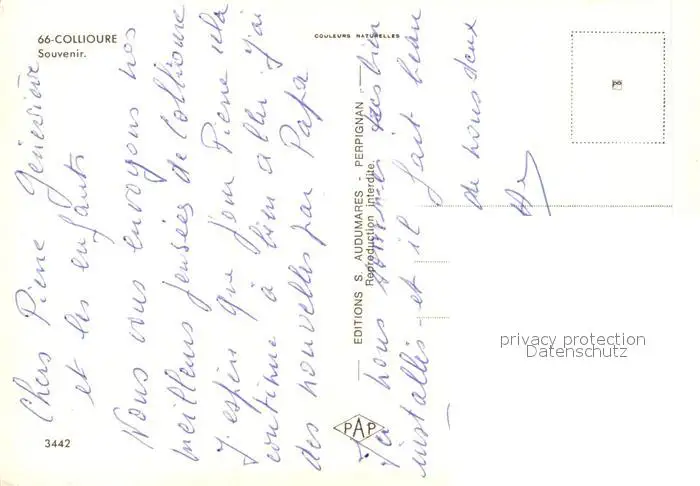 66-COLLIOURE
Souvenir.
COULEURS NATURELLES
Chers Pierre Geneviève
et les enfants
Nous vous envoyons nos
meilleurs pensées de Collioure
J'espère que pour Pierre cela
continue à bien aller j'ai
des nouvelles par Papa
Ici nous sommes très bien
installés - et il fait beau
de nous deux
EDITIONS S. AUDUMARES - PERPIGNAN
Reproduction interdite.
PAP
3442
privacy protection
Datenschutz